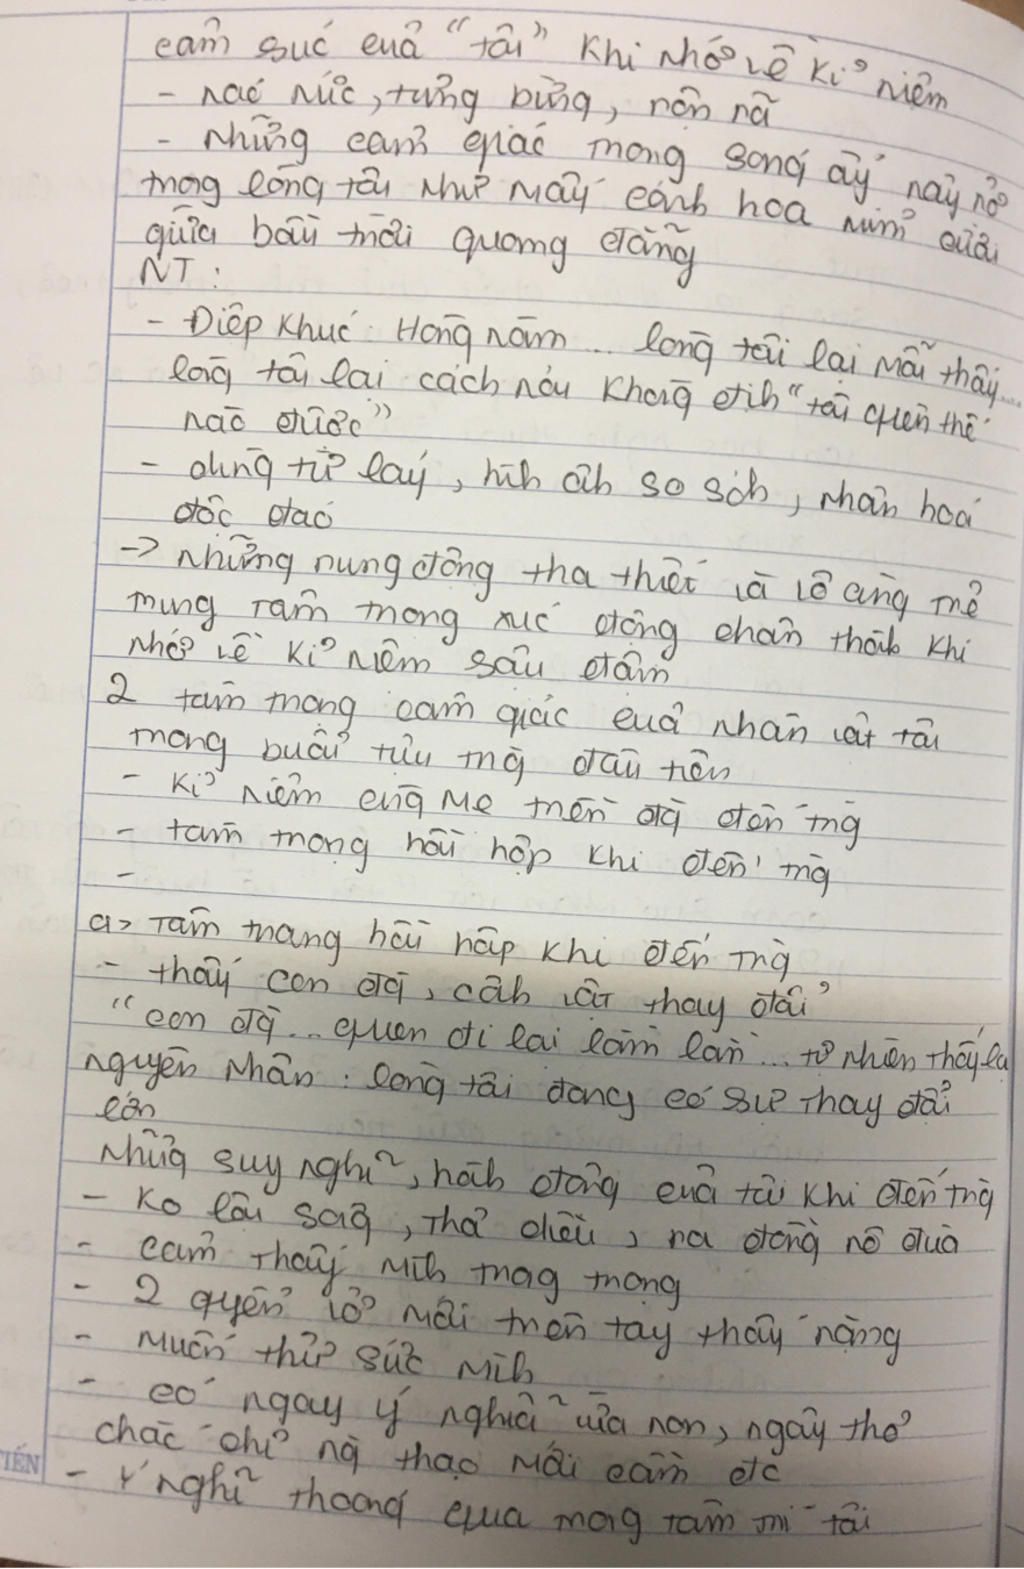 cảm xúc của "tôi" khi nhớ về kỉ niệm
- náo nức, tưng bừng, rộn rã
- những cảm giác trong sáng ấy nảy nở
trong lòng tôi như mấy cánh hoa mỉm cười
giữa bầu trời quang đãng
NT:
- Điệp khúc: Hàng năm... lòng tôi lại mỗi thấy...
lòng tôi lại cách nói khẳng địh "tôi quên thế
nào được"
- dùng từ láy, hìh ảh so sáh, nhân hoá
độc đáo
-> những rung động tha thiết và vô cùng
trong xúc động chân thàh khi
nhớ về kỉ niệm sâu đậm
2 tâm trạng cảm giác của nhân vật tôi
trong buổi tựu trg đầu tiên
- kỉ niệm cùng mẹ trên đg đến trg
- tâm trạng hồi hộp khi đến trg
-
a> Tâm trạng hồi hộp khi đến trg
- thấy con đg, cảh vật thay đổi
"con đg... quen đi lại lắm lần... tự nhiên thấy lạ
nguyên nhân: lòng tôi đang có sự thay đổi
lớn
những suy nghĩ, hàh động của tôi khi đến trg
- ko lội sông, thả diều, ra đồng nô đùa
- cảm thấy mìh trag trọng
- 2 quyển vở mới trên tay thấy nặng
- muốn thử sức mìh
- có ngay ý nghĩ vừa non, ngây thơ
chắc chỉ ng thạo mới cầm đc
- ý nghĩ thoáng qua trong tâm trí tôi
TIẾN